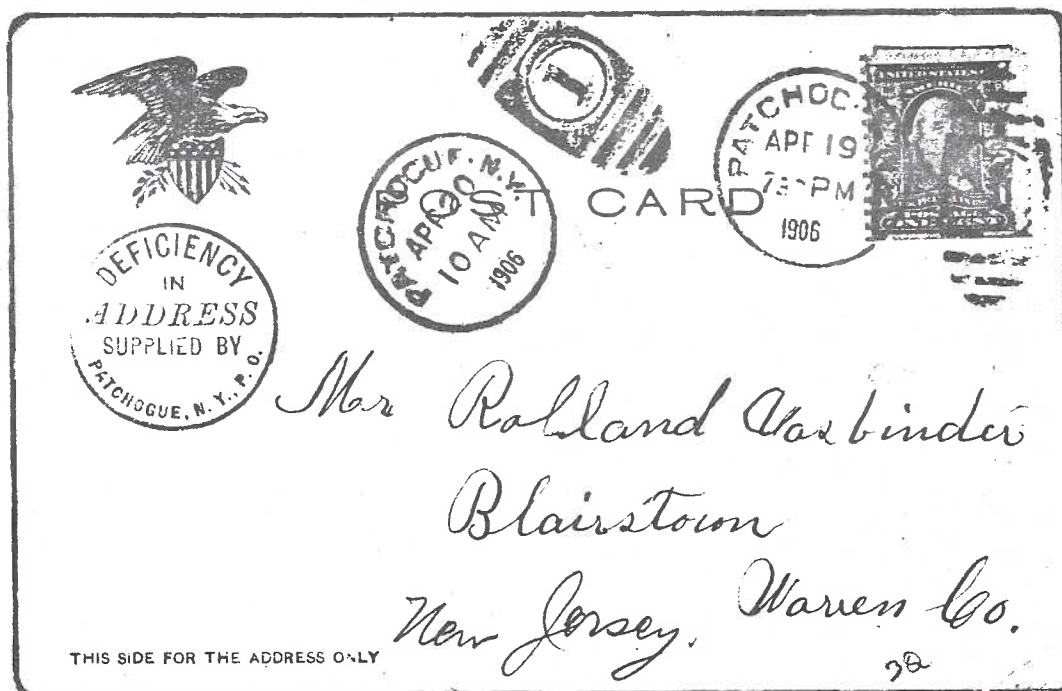 1
PATCHOGUE. N.Y.
APR 20
10 AM
1906
PATCHOG
APR 19
7 30 PM
1906
UNITED STATES
POST CARD
DEFICIENCY
IN
ADDRESS
SUPPLIED BY
PATCHOGUE, N. Y., P. O.
Mr Rolland Vosbinder
Blairstown
New Jersey. Warren Co.
THIS SIDE FOR THE ADDRESS ONLY